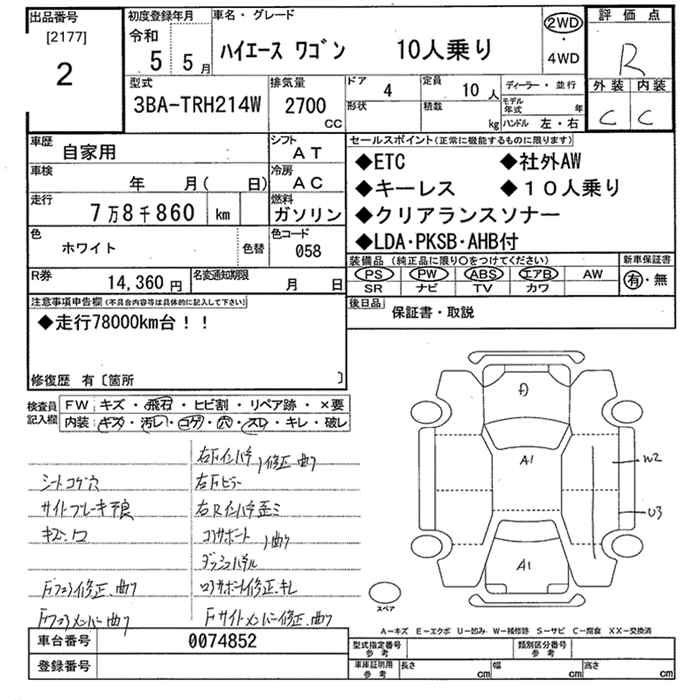 出品番号 初度登録年月 車名・グレード 評価点
[2177] 令和 ②WD
2 5 5月 ハイエース ワゴン 10人乗り ・ R
4WD
型式 排気量 ドア 4 定員 10 人 ディーラー・並行 外装 内装
3BA-TRH214W 2700 CC 形状 積数 kg モデル年式 年 C C
ハンドル 左・右
車歴 自家用 シフト AT セールスポイント(正常に機能するものに限ります)
車検 年 月( 日) 冷房 AC ◆ETC ◆社外AW
走行 7万8千860 km 燃料 ガソリン ◆キーレス ◆10人乗り
◆クリアランスソナー
色 ホワイト 色替 色コード 058 ◆LDA・PKSB・AHB付
装備品 (純正品に限り○をつけてください) 新車保証書
R券 14,360円 名変通知期限 月 日 PS PW ABS エアB AW 有・無
SR ナビ TV カワ
注意事項申告欄(不具合内容等は具体的に記入して下さい) 後日品 保証書・取説
◆走行78000km台!!
修復歴 有〔箇所 〕
検査員 FW キズ・飛石・ヒビ割・リペア跡・×要
記入欄 内装 キズ・汚レ・コゲ・穴・スレ・キレ・破レ
シートコゲ穴
サイドブレーキ不良
キズ・凹
右Fピラー
右Rインパネ歪ミ
コアサポート 曲り
ダッシュパネル
コアサポート修正、キレ
Fサイドメンバー修正、曲り
A1
W2
U3
A1
スペア
A-キズ E-エクボ U-凹み W-補修跡 S-サビ C-腐食 XX-交換済
車台番号 0074852 型式指定番号 参考 類別区分番号 参考
登録番号 車庫証明用 参考 長さ cm 幅 cm 高さ cm